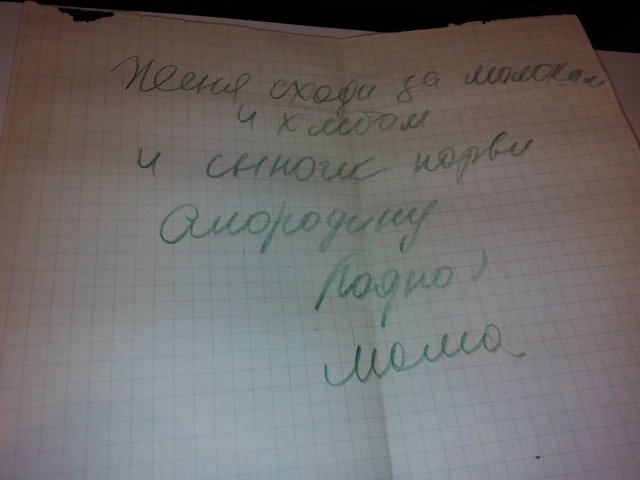 Женя сходи за молоком
и хлебом
и сыночек нарви
смородину
(ладно)
мама